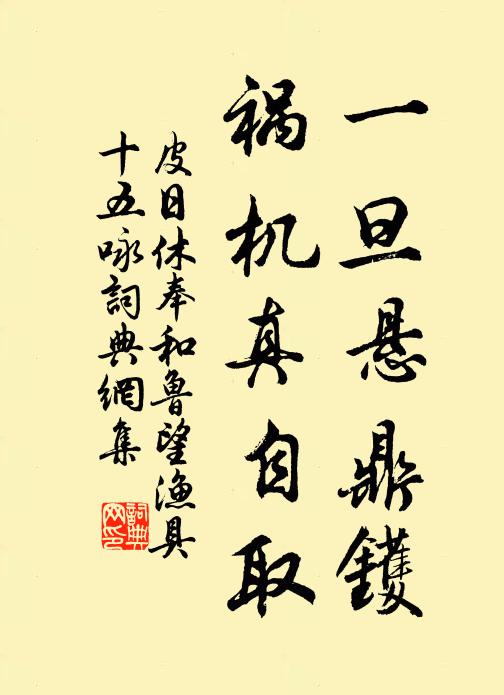 一旦悬鼎鑊
祸机真自取
皮日休奉和魯望漁具
十五咏詞典網集
詞典
网印